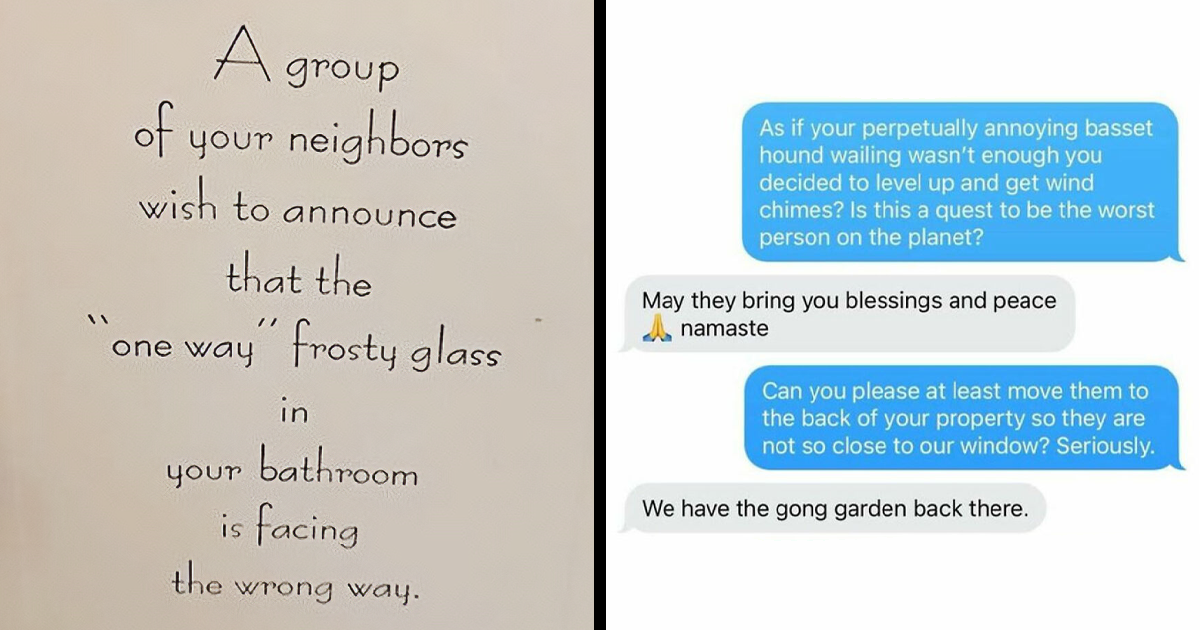 A group
of your neighbors
wish to announce
that the
“one way” frosty glass
in
your bathroom
is facing
the wrong way.
As if your perpetually annoying basset
hound wailing wasn’t enough you
decided to level up and get wind
chimes? Is this a quest to be the worst
person on the planet?
May they bring you blessings and peace
🙏 namaste
Can you please at least move them to
the back of your property so they are
not so close to our window? Seriously.
We have the gong garden back there.